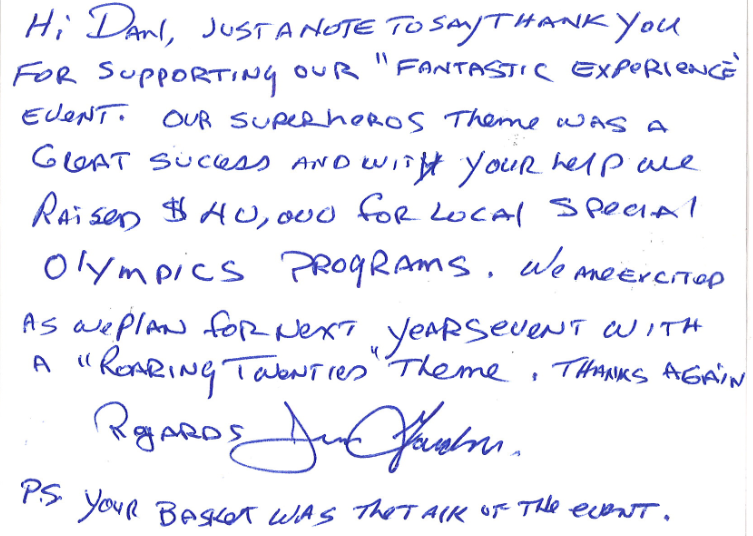 Hi Dan, JUST A NOTE TO SAY THANK YOU
FOR SUPPORTING OUR "FANTASTIC EXPERIENCE"
EVENT. OUR SUPERHEROS THEME WAS A
GREAT SUCCESS AND WITH YOUR HELP WE
RAISED $40,000 FOR LOCAL SPECIAL
OLYMPICS PROGRAMS. We ARE EXCITED
AS WE PLAN FOR NEXT YEARS EVENT WITH
A "ROARING TWENTIES" THEME. THANKS AGAIN
REGARDS
P.S. YOUR BASKET WAS THE TALK OF THE EVENT.